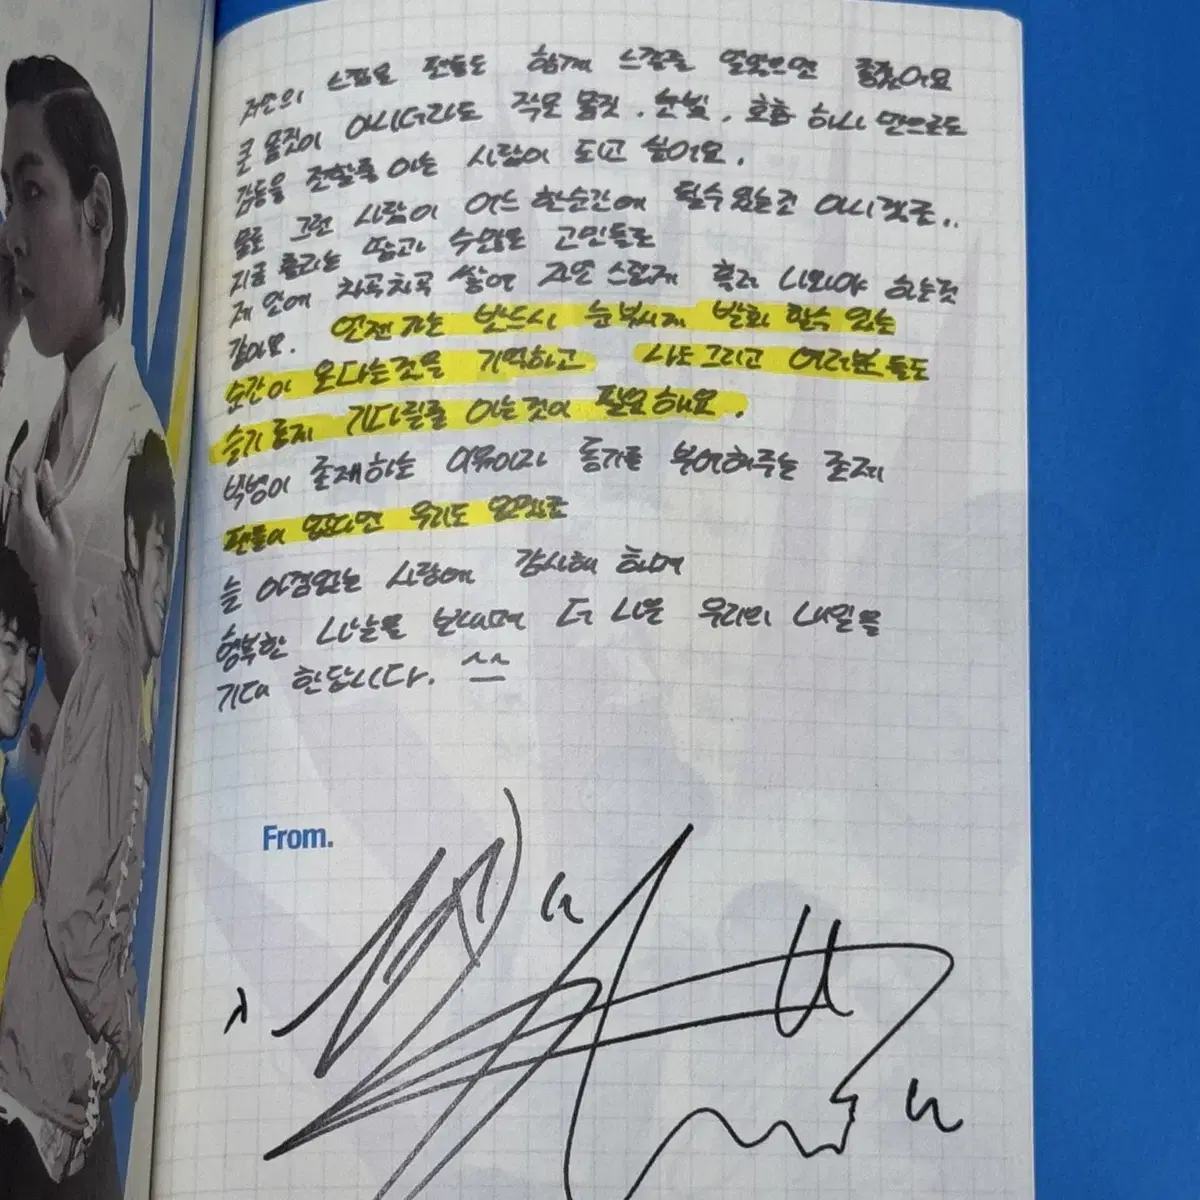 자신의 느낌을 팬들도 함께 느낄줄 알았으면 좋겠어요
큰 몸짓이 아니더라도 작은 몸짓. 눈빛. 호흡 하나 만으로도
감동을 전할줄 아는 사람이 되고 싶어요.
물론 그런 사람이 어느 한순간에 될수 있는건 아니겠죠..
지금 흘리는 땀과 수많은 고민들로
제 안에 차곡차곡 쌓여 자연 스럽게 흘러 나와야 하는것
같아요. 언젠가는 반드시 눈부시게 발휘 할수 있는
순간이 온다는것을 기억하고 나도 그리고 여러분들도
슬기롭게 기다릴줄 아는것이 필요해요.
빅뱅이 존재하는 이유이자 동기를 부여해주는 존재
팬들이 없다면 우리도 없겠죠
늘 아낌없는 사랑에 감사해 하며
행복한 나날을 보내며 더 나은 우리의 내일을
기대 한답니다. ^^
From.